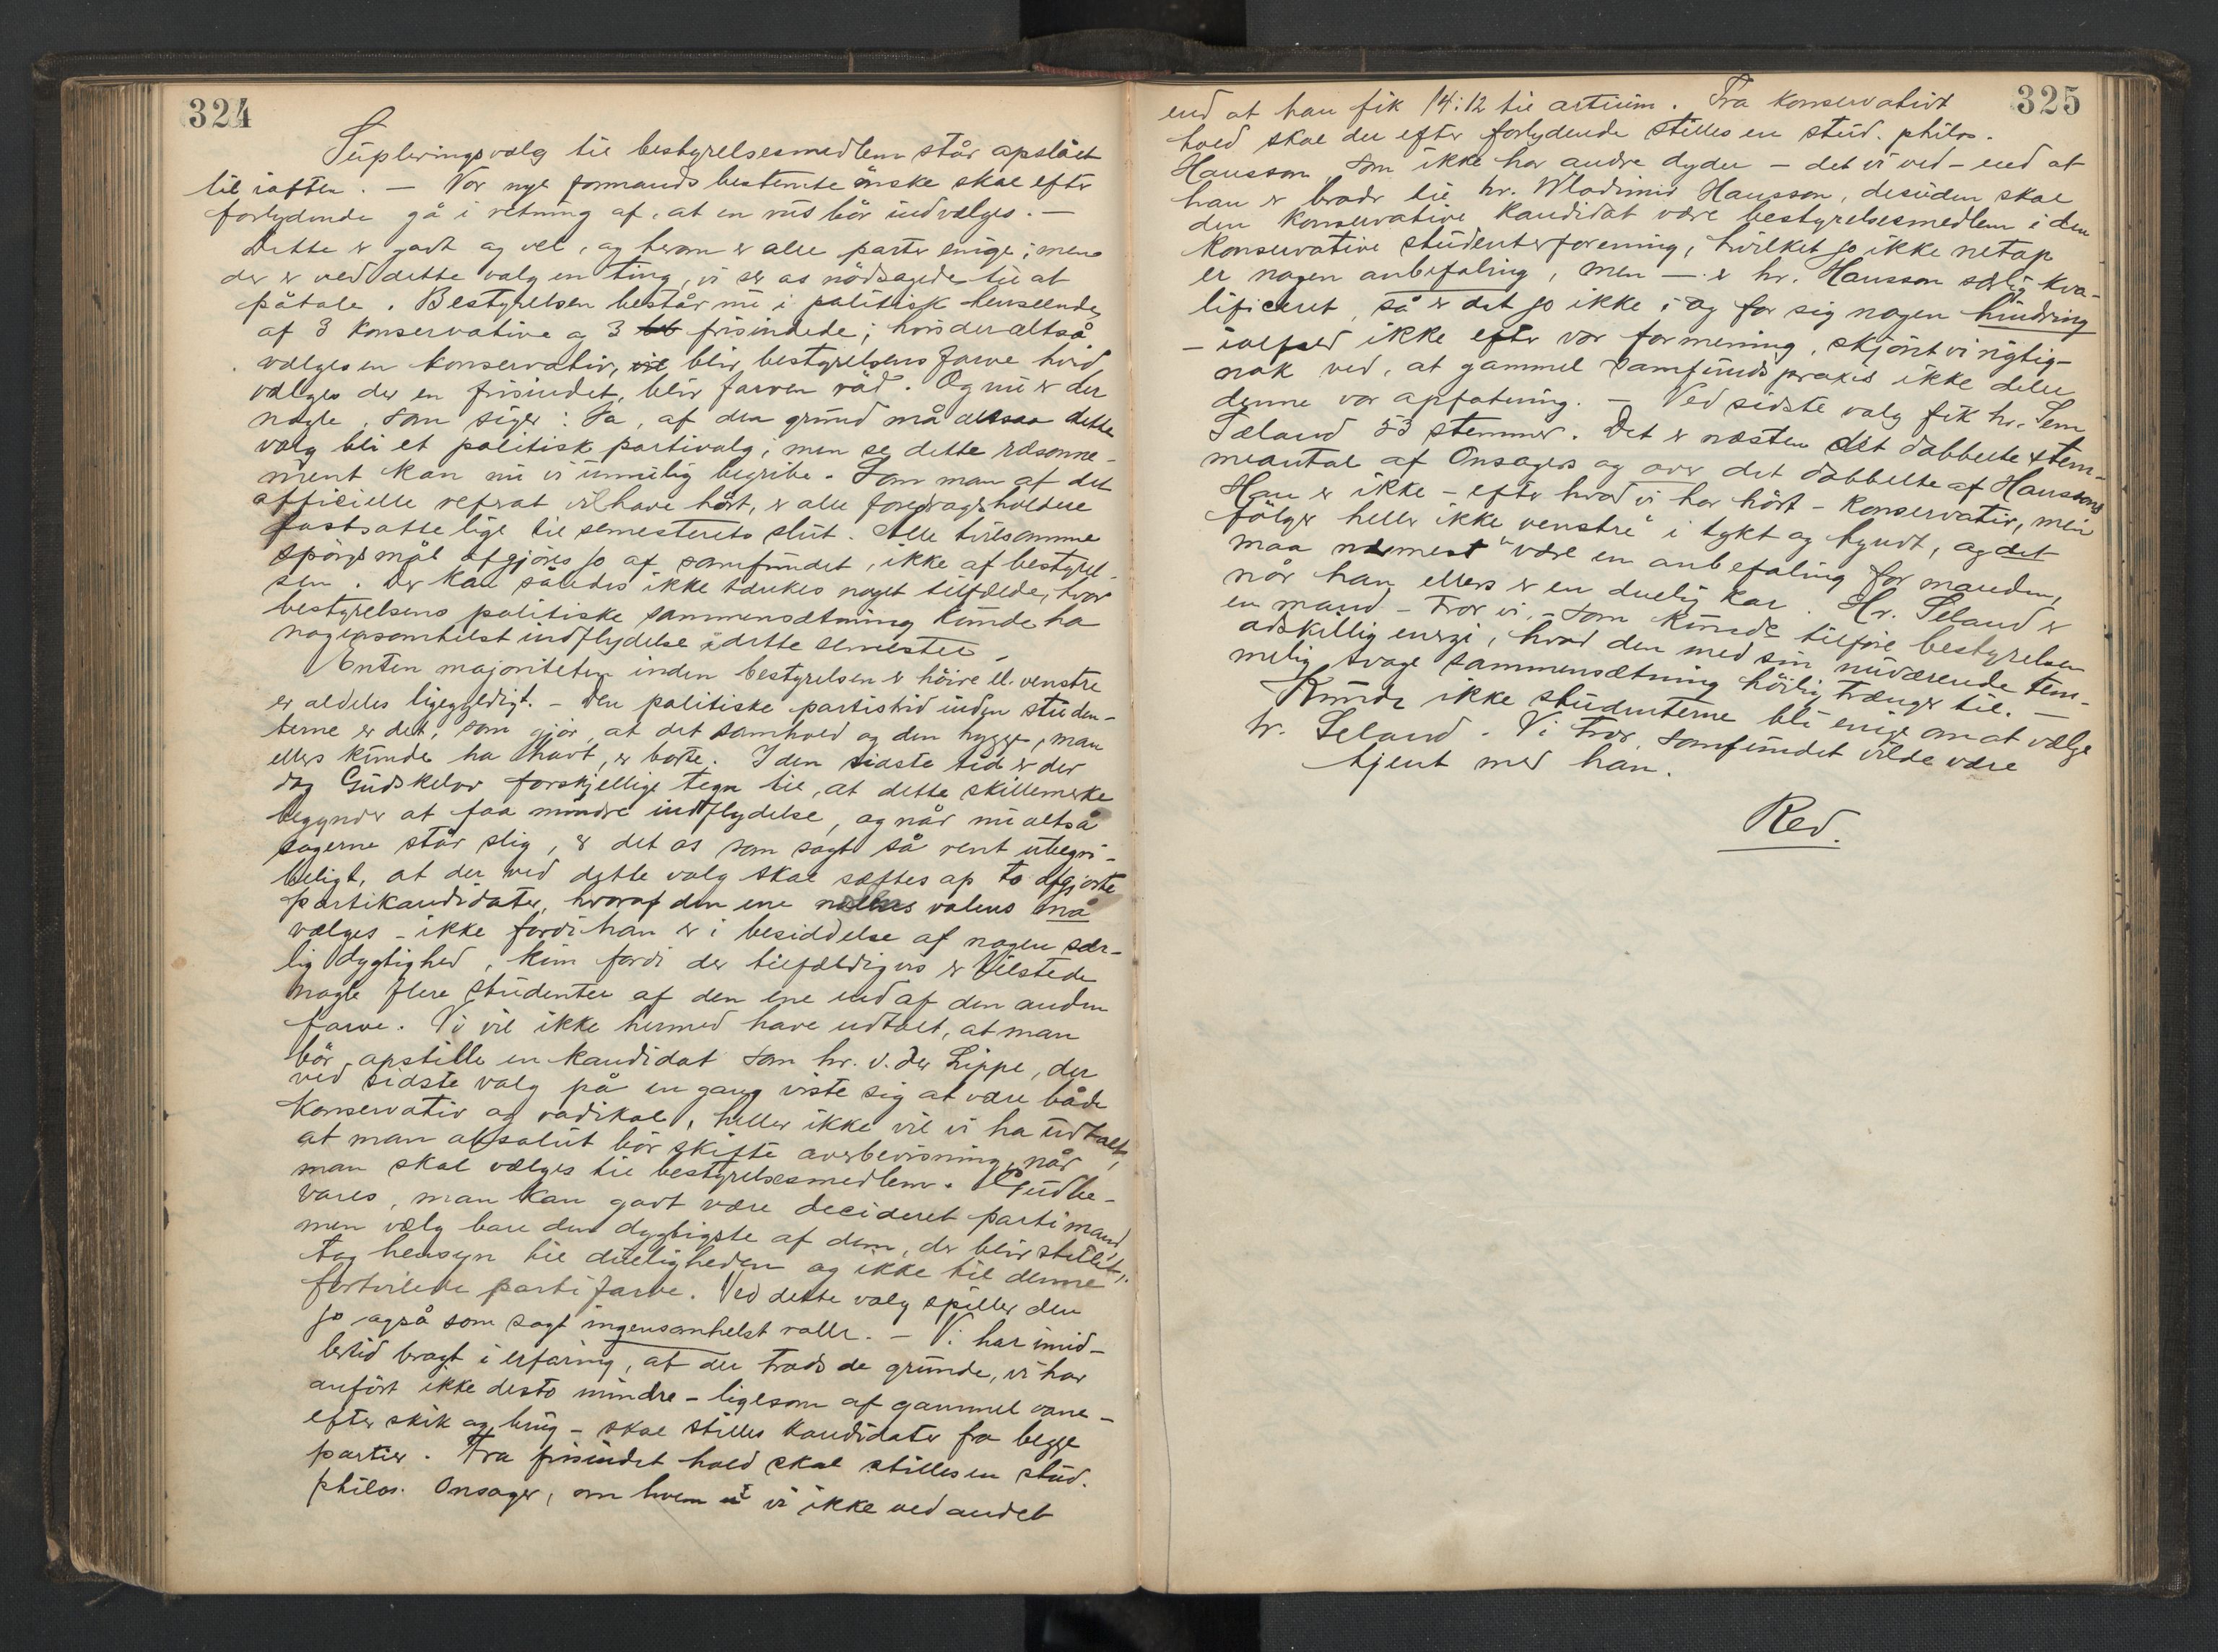 324
Supleringsvalg til bestyrelsesmedlem står opslået
til iaften. — Vor nye formands bestemte ønske skal efter
forlydende gå i retning af, at en rus bör indvælges. —
Dette er godt og vel, og herom er alle parter enige; men
der er ved dette valg en ting, vi ser os nödsagede til at
påtale. Bestyrelsen består nu i politisk henseende
af 3 konservative og 3 frisindede; hvis der altså
vælges en konservativ, vil blir bestyrelsens farve hvid
vælges der en frisindet, blir farven röd. Og nu er der
nogle, som siger: Ja, af den grund må dette
valg bli et politisk partivalg; men se dette ræsonne-
ment kan nu vi umulig begribe. Som man af det
officielle referat vil have hört, er alle foredragsholdere
fastsatte lige til semesterets slut. Alle tvilsomme
spörgsmål afgjöres jo af samfundet, ikke af bestyrel-
sen. Der kan således ikke tænkes noget tilfælde, hvor
bestyrelsens politiske sammensætning kunde ha
nogensomhelst indflydelse i dette semester.
Enten majoriteten inden bestyrelsen er höire el. venstre
er aldeles ligegyldigt. — Den politiske partistrid inden studen-
terne er det, som gjör, at det samhold og den hygge, man
ellers kunde ha havt, er borte. I den sidste tid er der
dog Gudskelov forskjellige tegn til, at dette skillemerke
begynder at faa mindre indflydelse, og når nu altså
sagerne står slig, er det os som sagt så rent ubegri-
beligt, at der ved dette valg skal sættes op to afgjorte
partikandidater, hvoraf den ene nolens volens må
vælges — ikke fordi han er i besiddelse af nogen sær-
lig dygtighed, kun fordi der tilfældigvis er tilstede
nogle flere studenter af den ene end af den anden
farve. Vi vil ikke hermed have udtalt, at man
bör opstille en kandidat som hr. v. der Lippe, der
ved sidste valg på en gang viste sig at være både
konservativ og radikal, heller ikke vil vi ha udtalt,
at man absolut bör skifte overbevisning, når
man skal vælges til bestyrelsesmedlem. Gudbe-
vares, man kan godt være decideret partimand,
men vælg bare den dygtigste af dem, der blir stillet,
tag hensyn til dueligheden og ikke til denne
fortvilede partifarve. Ved dette valg spiller den
jo også som sagt ingensomhelst rolle. — Vi har imid-
lertid bragt i erfaring, at der trods de grunde, vi har
anfört ikke desto mindre — ligesom af gammel vane —
efter skik og brug — skal stilles kandidater fra begge
partier. Fra frisindet hold skal stilles en stud.
philos. Onsager, om hvem vi ikke ved andet
325
end at han fik 14:12 til artium. Fra konservativt
hold skal der efter forlydende stilles en stud. philos.
Hansson, som ikke har andre dyder — det vi ved — end at
han er broder til hr. Wladimir Hansson, desuden skal
den konservative kandidat være bestyrelsesmedlem i den
konservative studenterforening, hvilket jo ikke netop
er nogen anbefaling, men — er hr. Hansson særlig kva-
lificeret, så er det jo ikke i og for sig nogen hindring
— ialfald ikke efter vor formening, skjönt vi rigtig-
nok ved, at gammel samfundspraxis ikke deler
denne vor opfatning. — Ved sidste valg fik hr. Jens
Sæland 53 stemmer. Det er næsten det dobbelte stem-
meantal af Onsagers og over det dobbelte af Hanssons
Han er ikke — efter hvad vi har hört — konservativ, men
fölger heller ikke "venstre" i tykt og tyndt, og det
maa nærmest være en anbefaling for manden,
når han ellers er en duelig kar. Hr. Seland er
en mand — tror vi, — som kunde tilföre bestyrelsen
adskillig energi, hvad den med sin nuværende tem-
melig svage sammensætning höilig trænger til. —
Kunde ikke studenterne bli enige om at vælge
hr. Seland. Vi tror, samfundet vilde være
tjent med han.
Red.